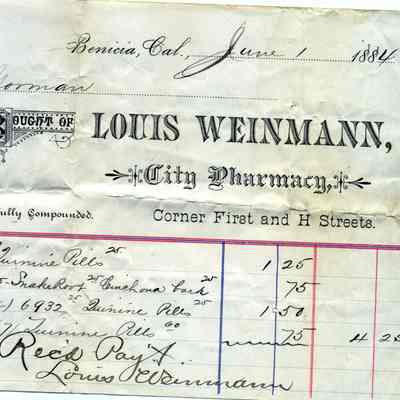 Benicia, Cal., June 1 1884
orman
OUGHT OF LOUIS WEINMANN,
City Pharmacy,
ully Compounded. Corner First and H Streets.
Quinine Pills 25 1 25
Snakeroot 25 Cinchona bark 25 75
6932 25 Quinine Pills 25 1.50
Quinine Pills 60 75 4 2
Rec'd Pay't
Louis Weinmann